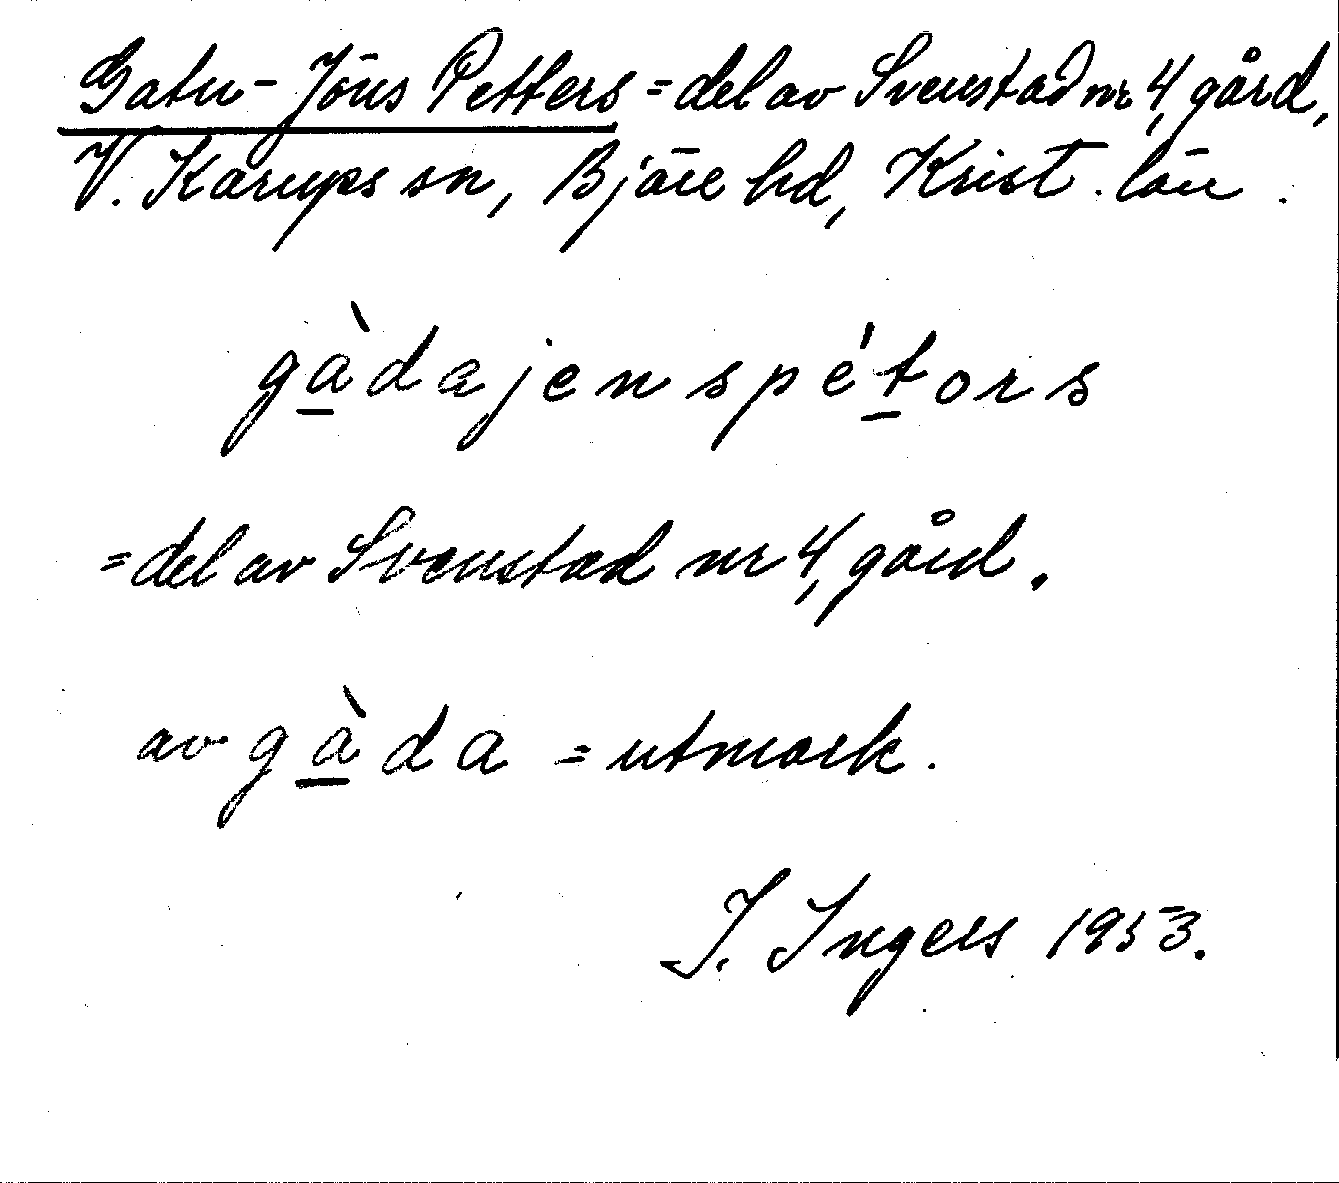 Gatu-Jöns Petters = del av Svenstad nr 4, gård,
V. Karups sn, Bjäre hd, Krist. län.
gàdajenspétors
= del av Svenstad nr 4, gård.
av gàda = utmark.
I. Ingers 1953.